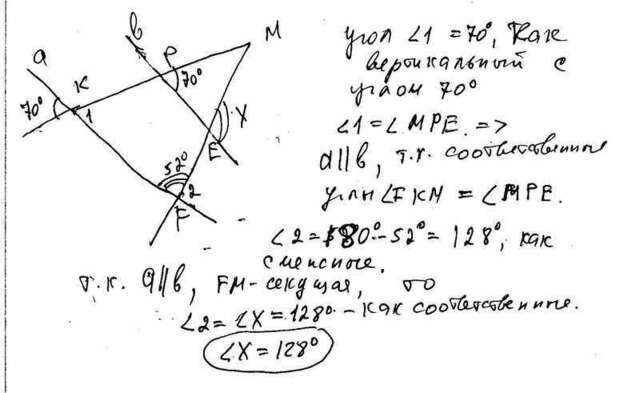 a
b
M
K
P
70°
70°
1
X
E
52°
2
F
угол ∠1 = 70°, как
вертикальный с
углом 70°
∠1 = ∠MPE. =>
a∥b, т.к. соответственные
углы ∠FKM = ∠MPE.
∠2 = 180° - 52° = 128°, как
смежные.
т.к. a∥b, FM - секущая, то
∠2 = ∠X = 128° - как соответственные.
∠X = 128°